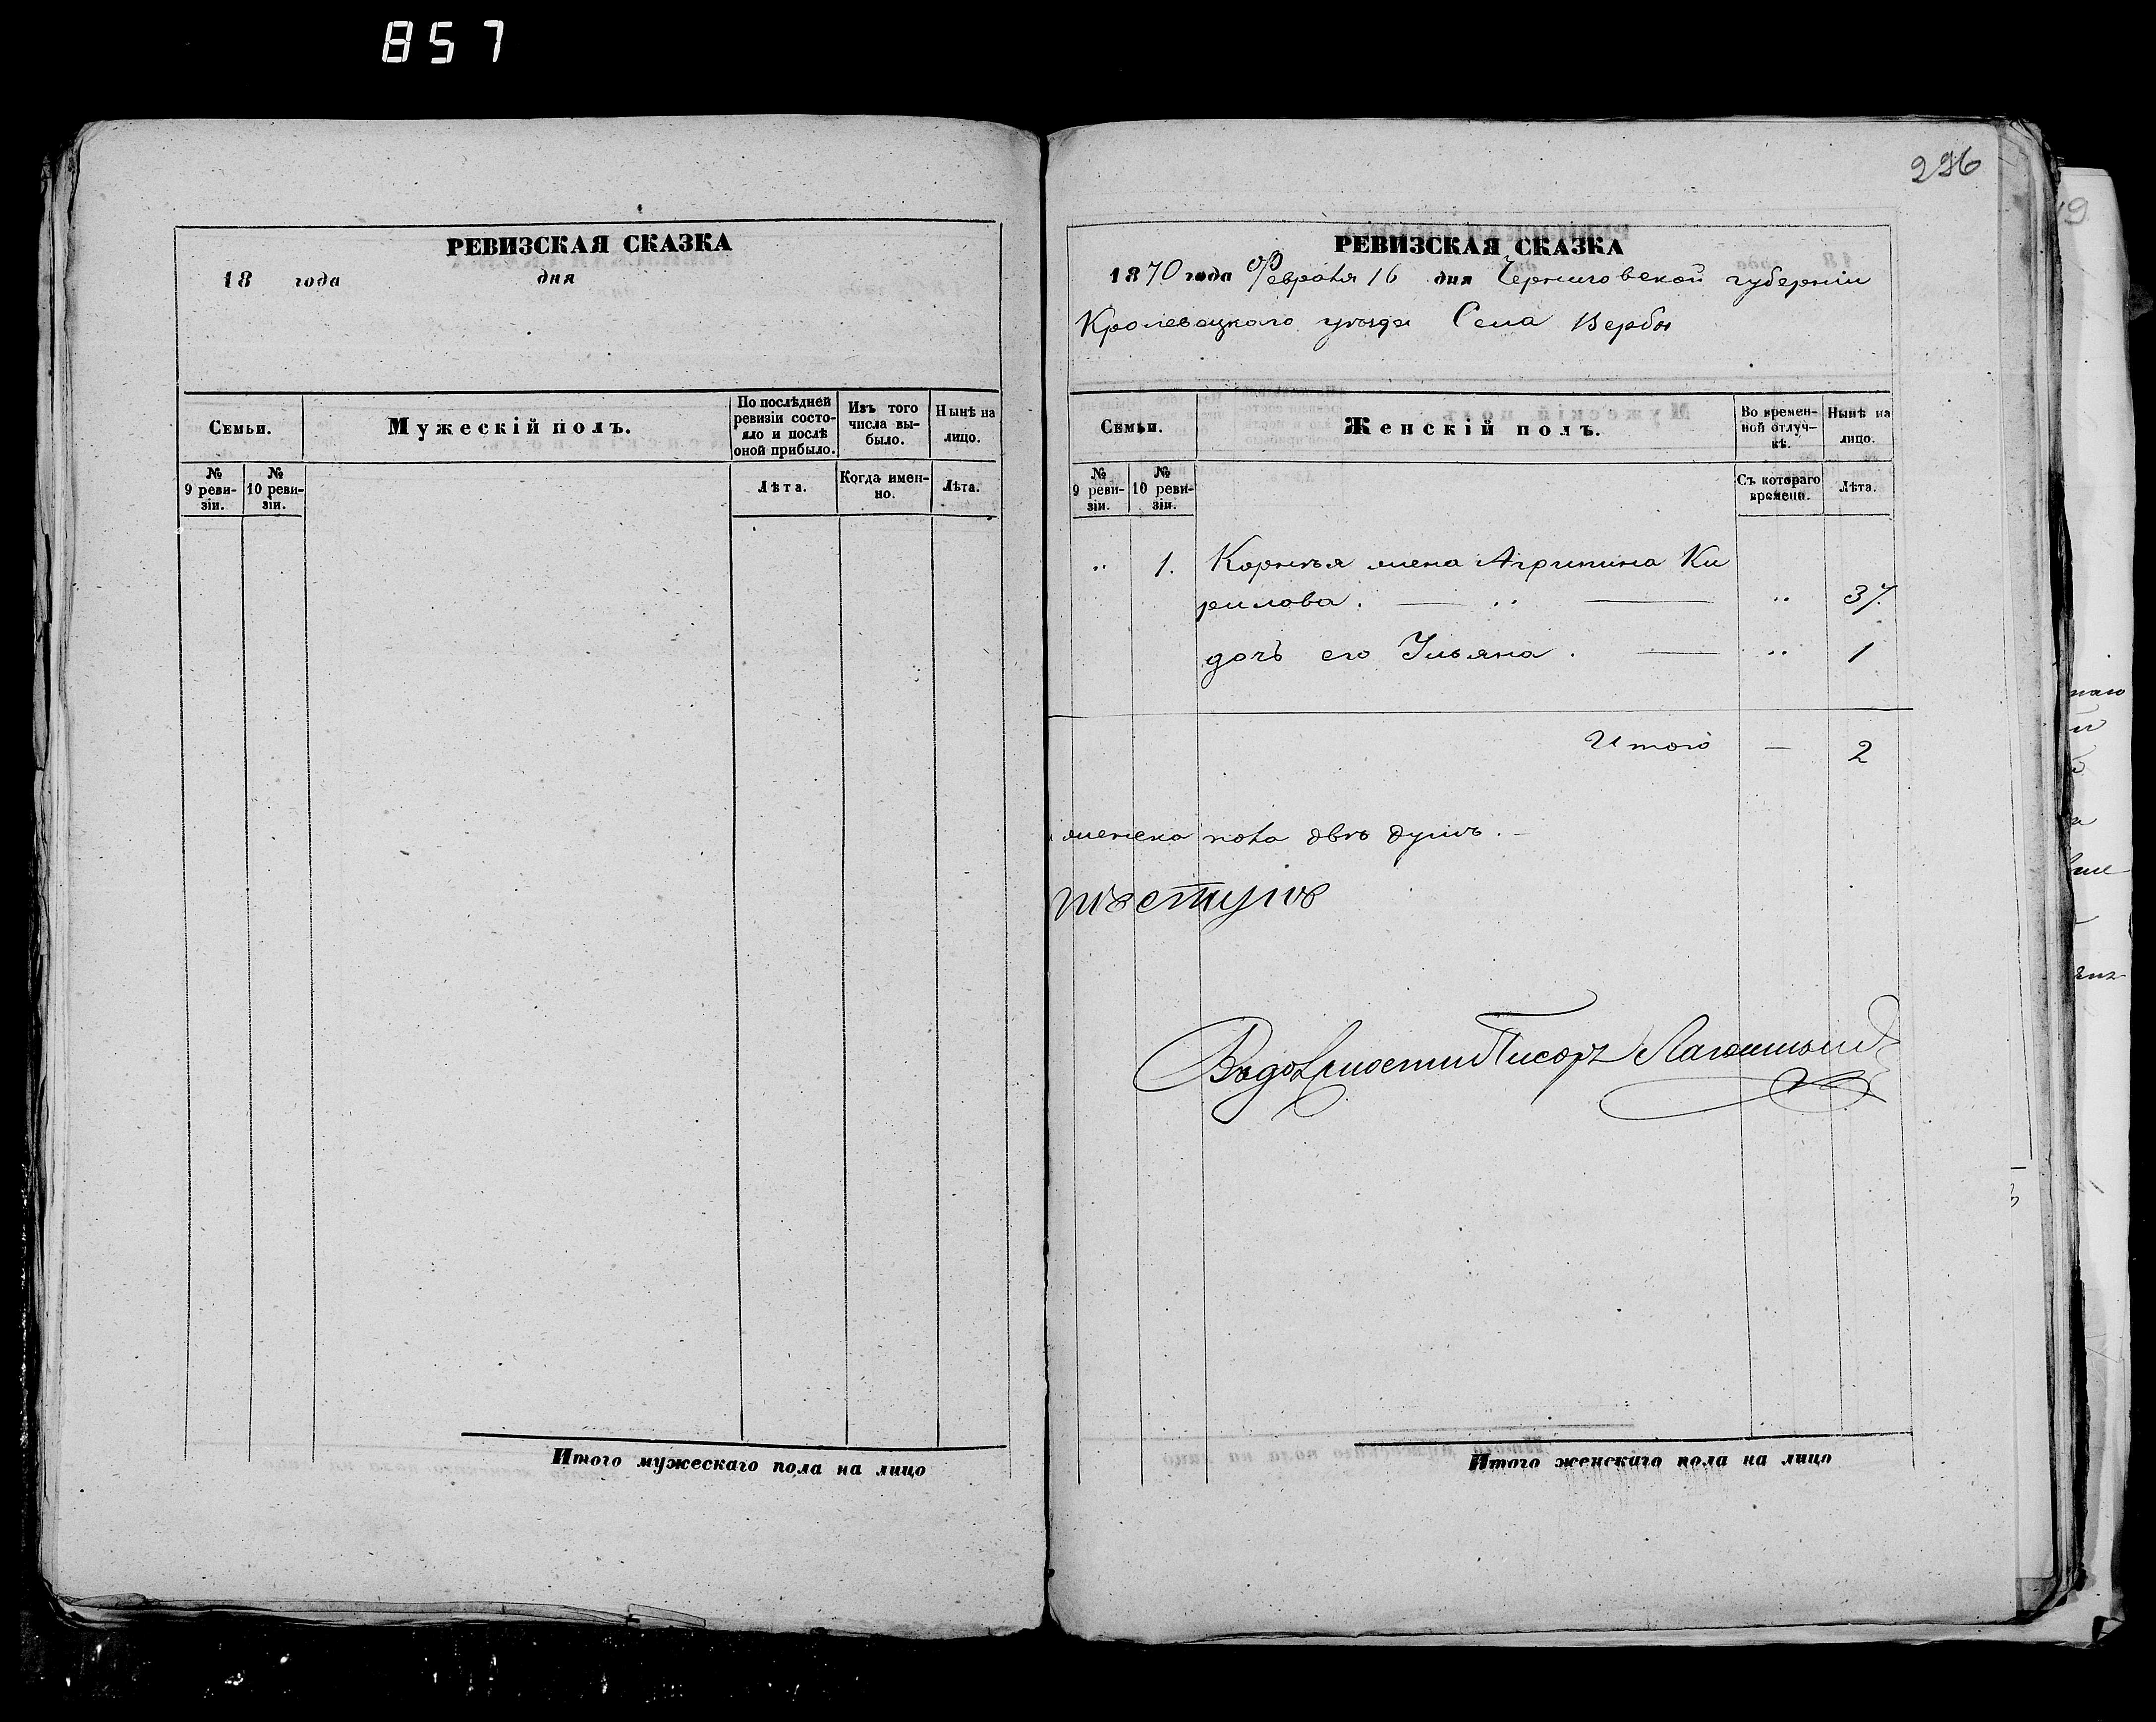 857
РЕВИЗСКАЯ СКАЗКА
18 года дня
Семьи.
Мужескій полъ.
По послѣдней ревизіи состояло и послѣ оной прибыло.
Изъ того числа выбыло.
Нынѣ на лицо.
№ 9 ревизіи.
№ 10 ревизіи.
Лѣта.
Когда именно.
Лѣта.
Итого мужескаго пола на лицо
296
РЕВИЗСКАЯ СКАЗКА
1870 года Февраля 16 дня Черниговской губерніи
Кролевецкаго уѣзда Села Вербы
Семьи.
Женскій полъ.
Во временной отлучкѣ.
Нынѣ на лицо.
№ 9 ревизіи.
№ 10 ревизіи.
Съ котораго времени.
Лѣта.
" 1. Корнѣя жена Агрипина Ки
рилова. — " — " 37.
дочь его Ульяна. — " 1
Итого — 2
женска пола двѣ душѣ. —
Писарь
Итого женскаго пола на лицо